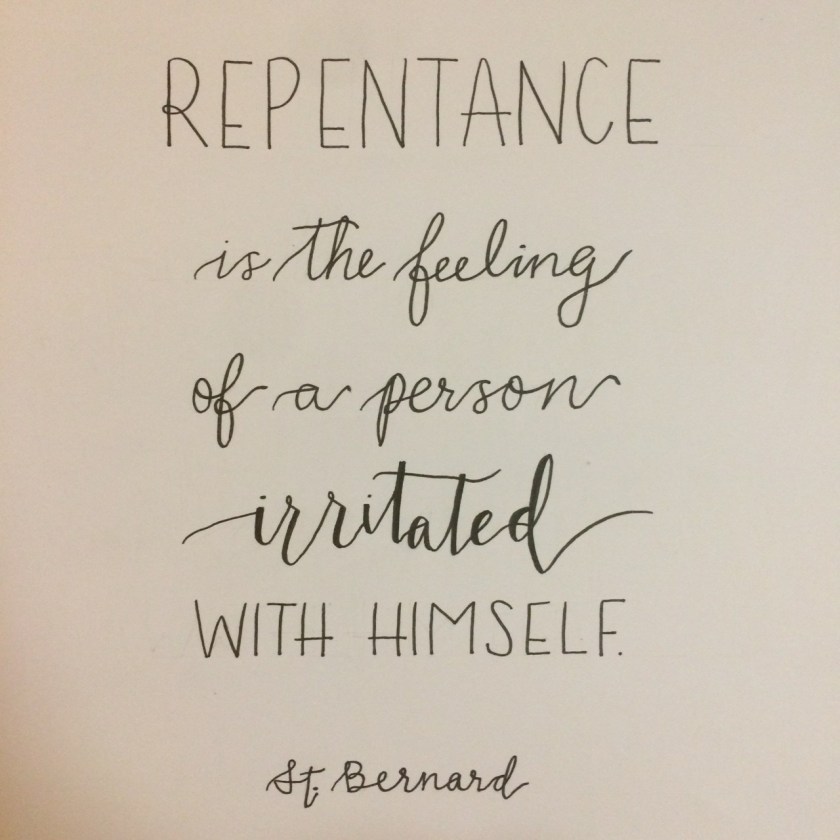 REPENTANCE
is the feeling
of a person
irritated
WITH HIMSELF.
St. Bernard